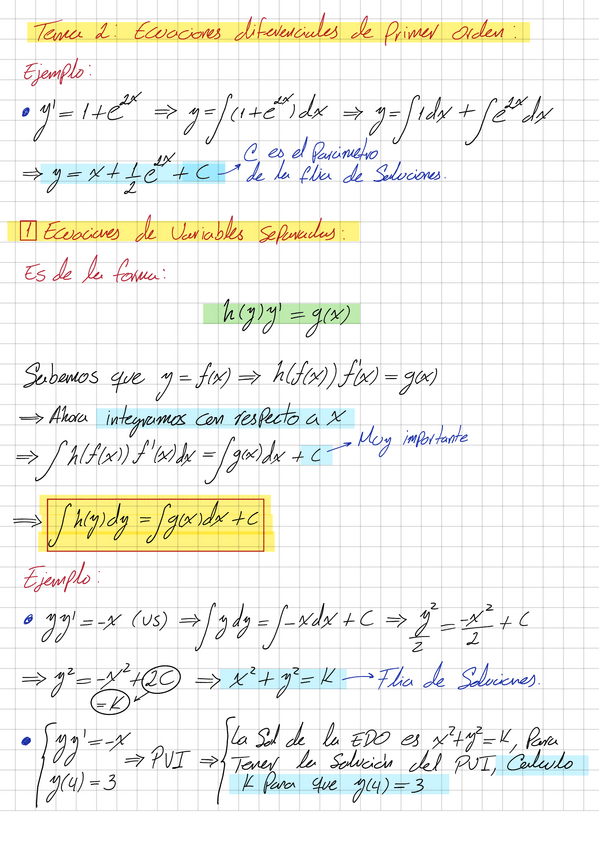 Tema 2: Ecuaciones diferenciales de Primer orden:
Ejemplo:
• y' = 1+e^{2x} ⇒ y=∫(1+e^{2x})dx ⇒ y=∫1dx + ∫e^{2x}dx
⇒ y = x + 1/2 e^{2x} + C → C es el Parámetro
de la flia de Soluciones.
1 Ecuaciones de Variables Separadas:
Es de la forma:
h(y)y' = g(x)
Sabemos que y = f(x) ⇒ h(f(x)) f'(x) = g(x)
⇒ Ahora integramos con respecto a x
⇒ ∫h(f(x)) f'(x)dx = ∫g(x)dx + C → Muy importante
⇒ ∫h(y)dy = ∫g(x)dx + C
Ejemplo:
• yy' = -x (VS) ⇒ ∫y dy = ∫-x dx + C ⇒ y²/2 = -x²/2 + C
⇒ y² = -x² + 2C ⇒ x² + y² = K → Flia de Soluciones.
= K
• { yy' = -x ⇒ PVI ⇒ { La Sol de la EDO es x²+y²=K, Para
y(4) = 3 Tener la Solución del PVI, Calculo
K Para que y(4) = 3